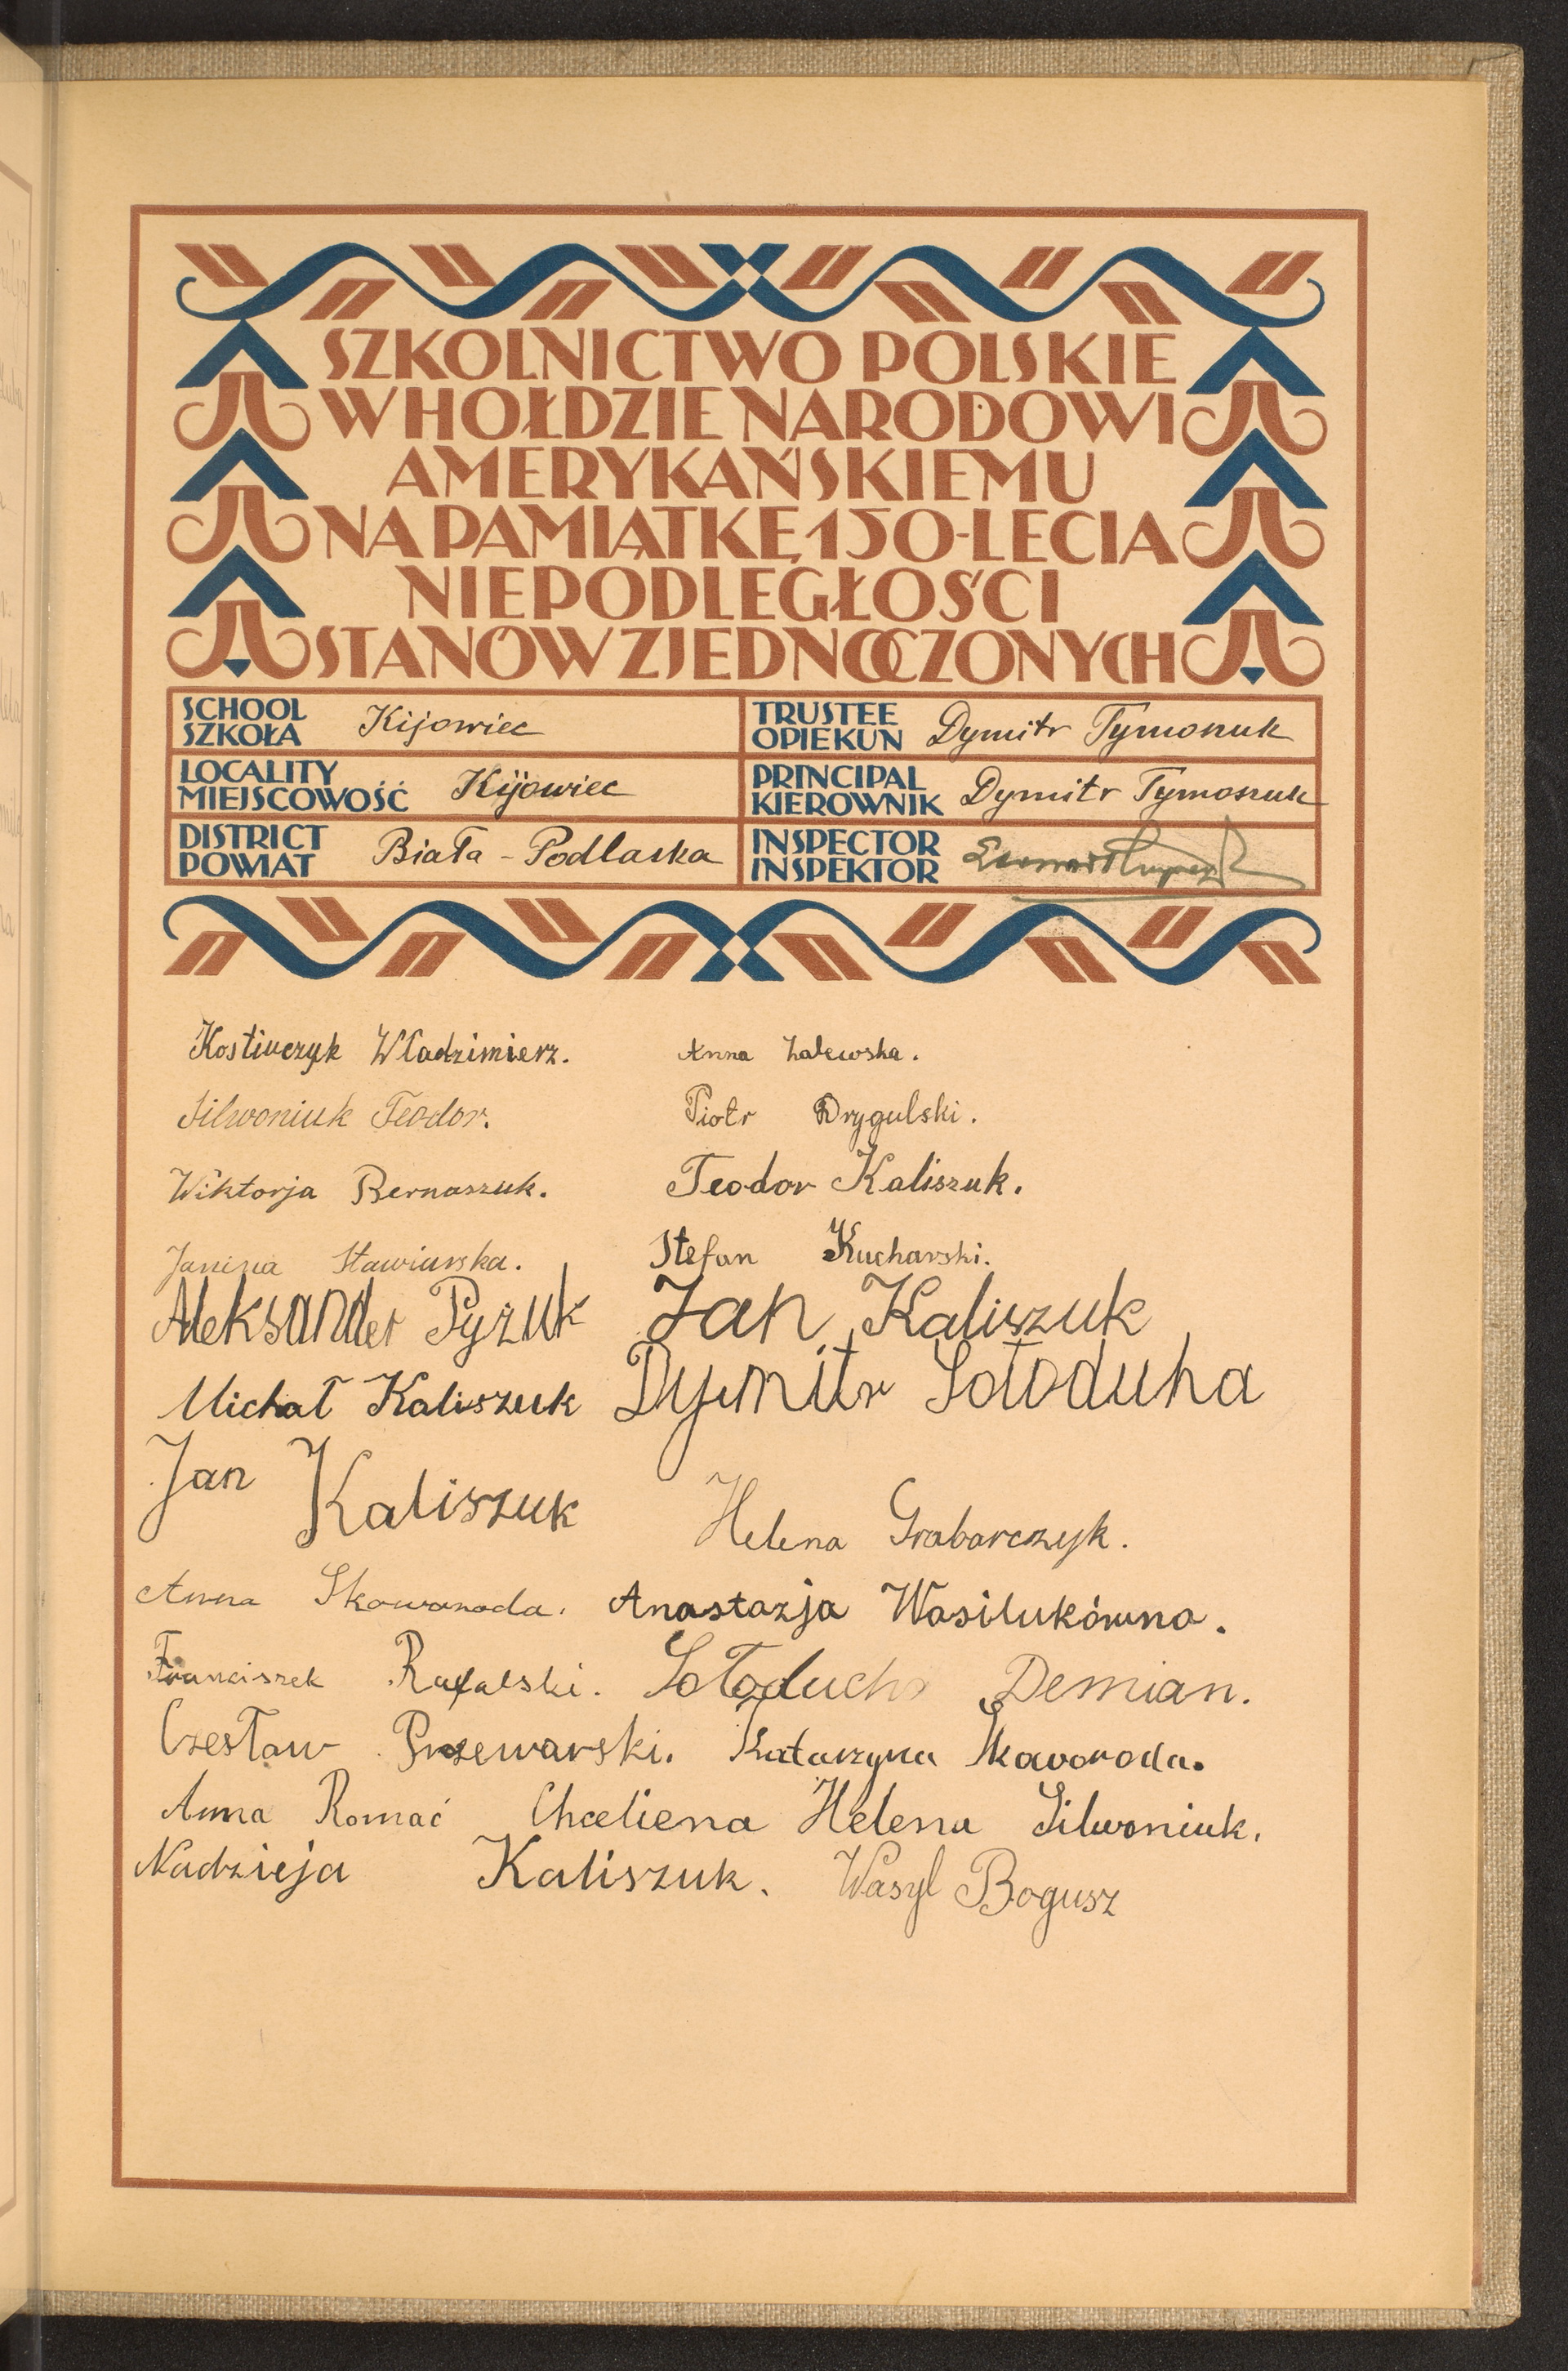 SZKOLNICTWO POLSKIE
W HOŁDZIE NARODOWI
AMERYKAŃSKIEMU
NA PAMIĄTKĘ 150-LECIA
NIEPODLEGŁOŚCI
STANÓW ZJEDNOCZONYCH
SCHOOL
SZKOŁA
Kijowiec
TRUSTEE
OPIEKUN
Dymitr Tymoszuk
LOCALITY
MIEJSCOWOŚĆ
Kijowiec
PRINCIPAL
KIEROWNIK
Dymitr Tymoszuk
DISTRICT
POWIAT
Biała - Podlaska
INSPECTOR
INSPEKTOR
Kostiuczyk Władzimierz. Anna Zalewska.
Silwoniuk Teodor. Piotr Drygulski.
Wiktorja Bernaszuk. Teodor Kaliszuk.
Janina Stawiarska. Stefan Kucharski.
Aleksander Pyżuk Jan Kaliszuk
Michał Kaliszuk Dymitr Sołoduha
Jan Kaliszuk Helena Grabarczyk.
Anna Skoworoda. Anastazja Wasilukówna.
Franciszek Rafalski. Sołoducha Demian.
Czesław Przewarski. Katarzyna Skaworoda.
Anna Romać Chceliena Helena Silwoniuk.
Nadzieja Kaliszuk. Wasyl Bogusz